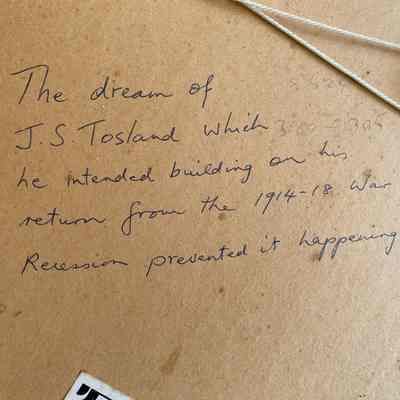 The dream of
J.S. Tosland which
he intended building on his
return from the 1914-18 War
Recession prevented it happening